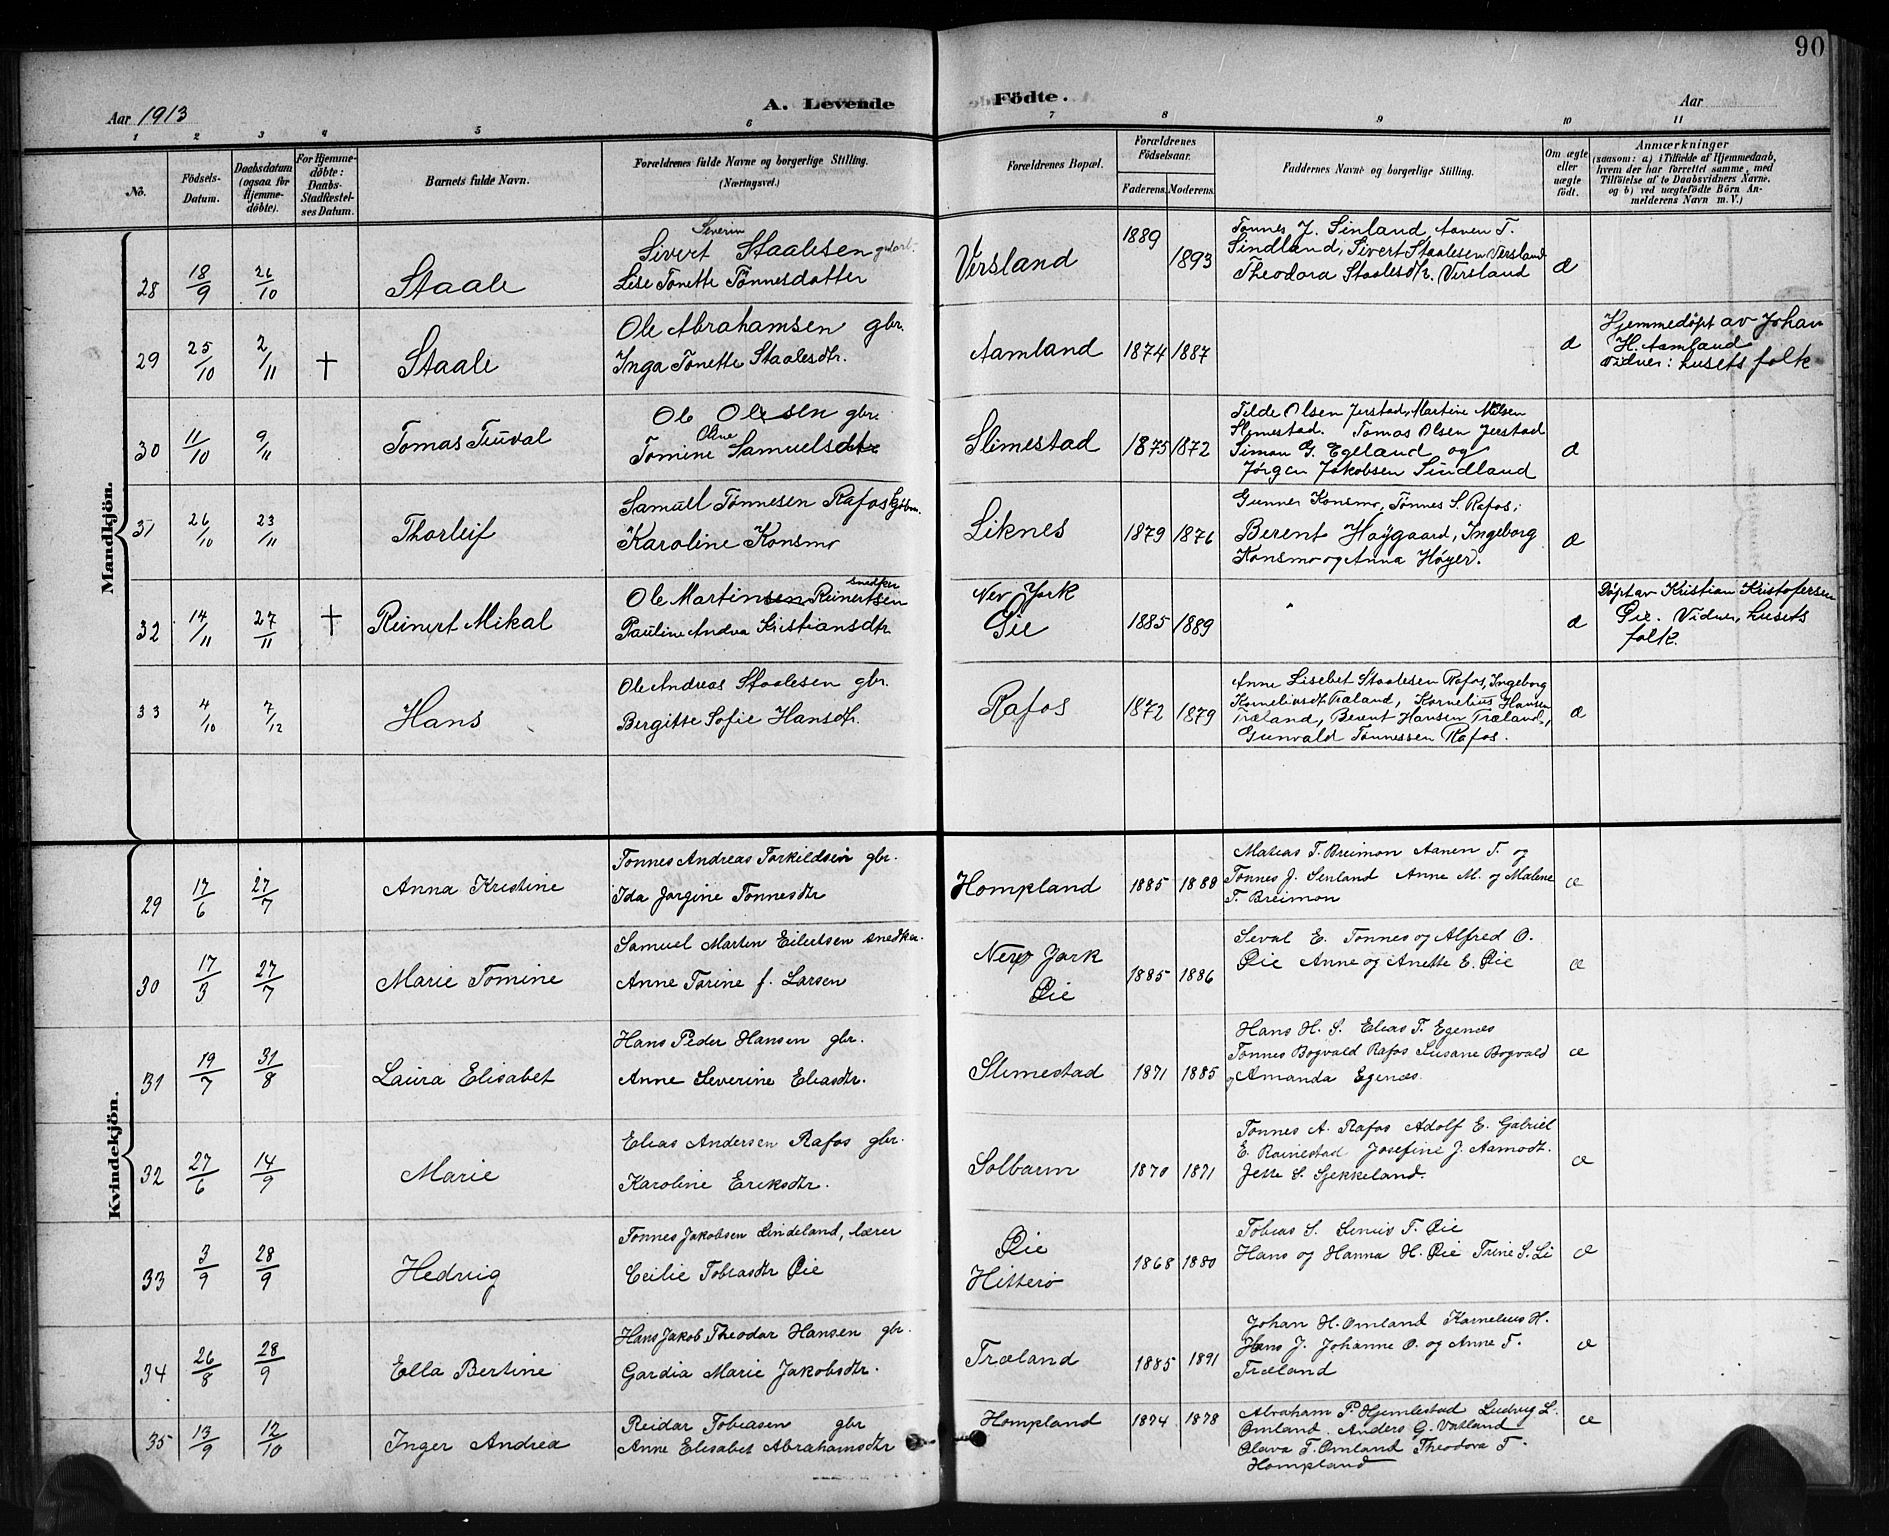 90
Aar 1913 A. Levende Födte. Aar
1 2 3 4 5 6 7 8 9 10 11
No.
Födsels-Datum.
Daabsdatum (ogsaa for Hjemme-döbte).
For Hjemme-döbte: Daabs-Stadfæstel-ses Datum.
Barnets fulde Navn.
Forældrenes fulde Navne og borgerlige Stilling. (Næringsvei.)
Forældrenes Bopæl.
Forældrenes Födselsaar.
Faderens. Moderens.
Faddernes Navne og borgerlige Stilling.
Om ægte eller uægte födt.
Anmærkninger
(saasom: a) i Tilfælde af Hjemmedaab, hvem der har forrettet samme, med Tilföielse af to Daabsvidners Navne, og b) ved uægtefödte Börn Anmelderens Navn m. V.)
Mandkjön.
28 18/9 26/10 Staale
Severin
Sivert Staalesen
Lise Tonette Tönnesdatter
Versland 1889 1893
Tönnes J. Sinland, Aanen T.
Sindland, Sivert Staalesen Versland
Theodora Staalesdtr. Versland
æ
29 25/10 2/11 † Staale
Ole Abrahamsen gbr.
Inga Tonette Staalesdtr.
Aamland 1874 1887 æ
Hjemmedøpt av Johan
H. Aamland
Vidner: husets folk
30 11/10 9/11 Tomas Teuval
Ole Olesen gbr.
Oline
Tomine Samuelsdtr
Slimestad 1875 1872
Tilde Olsen Jerstad, Martine Nilsen
Slimestad. Tomas Olsen Jerstad
Simon G. Egeland og
Jørgen Jakobsen Sindland
æ
31 26/10 23/11 Thorleif
Samuel Tønnesen Rafos
Karoline Konsmo
Liknes 1879 1876
Gunner Konsmo, Tønnes S. Rafos,
Berent Høygaard, Ingeborg
Konsmo og Anna Høyer.
æ
32 14/11 27/11 † Reinert Mikal
snedker
Ole Martinsen Reinertsen
Pauline Andrea Kristiansdtr
New York
Øie
1885 1889 æ
Døpt av Kristian Kristofersen
Øie. Vidner, husets
folk.
33 4/10 7/12 Hans
Ole Andreas Staalesen gbr.
Bergitte Sofie Hansdtr.
Rafos 1872 1879
Anne Lisebet Staalesen Rafos, Ingeborg
Korneliusdt. Træland, Kornelius Hansen
Træland, Berent Hansen Træland,
Gunvald Tønnessen Rafos.
æ
Kvindekjön.
29 17/6 27/7 Anna Kristine
Tonnes Andreas Torkildsen gbr.
Ida Jorgine Tonnesdtr
Hompland 1885 1889
Matias T. Breimon Aanen T. og
Tonnes J. Senland Anne M. og Malene
T. Breimon
æ
30 17/3 27/7 Marie Tomine
Samuel Martin Eilertsen snedker.
Anne Torine f. Larsen
New York
Øie
1885 1886
Seval E. Tonnes og Alfred O.
Øie Anne og Anette E. Øie
æ
31 19/7 31/8 Laura Elisabet
Hans Peder Hansen gbr.
Anne Severine Eliasdtr.
Slimestad 1871 1885
Hans H. S. Elias T. Egenæs
Tonnes Bogvald Rafos Susane Bogvald
og Amanda Egenæs.
æ
32 27/6 14/9 Marie
Elias Andersen Rafos gbr.
Karoline Eriksdtr.
Solbarm 1870 1871
Tonnes A. Rafos Adolf E. Gabriel
E. Rainestad Josefine J. Aamodt.
Jette S. Sjekkeland.
æ
33 3/9 28/9 Hedvig
Tonnes Jakobsen Lindeland, lærer
Cecilie Tobiasdtr Øie
Øie
Hitterø
1868 1880
Tobias S. Senius T. Øie
Hans og Hanna H. Øie Trine S. Li
æ
34 26/8 28/9 Ella Bertine
Hans Jakob Theodor Hansen gbr.
Gardia Marie Jakobsdtr.
Træland 1885 1891
Johan H. Omland Kornelius H.
Hans J. Johanne O. og Anne T.
Træland
æ
35 13/9 12/10 Inger Andrea
Reidar Tobiasen gbr
Anne Elisabet Abrahamsdtr
Hompland 1874 1878
Abraham P. Hjemlestad Ludvig L.
Omland. Anders G. Vatland
Olava T. Omland Theodora T.
Hompland
æ